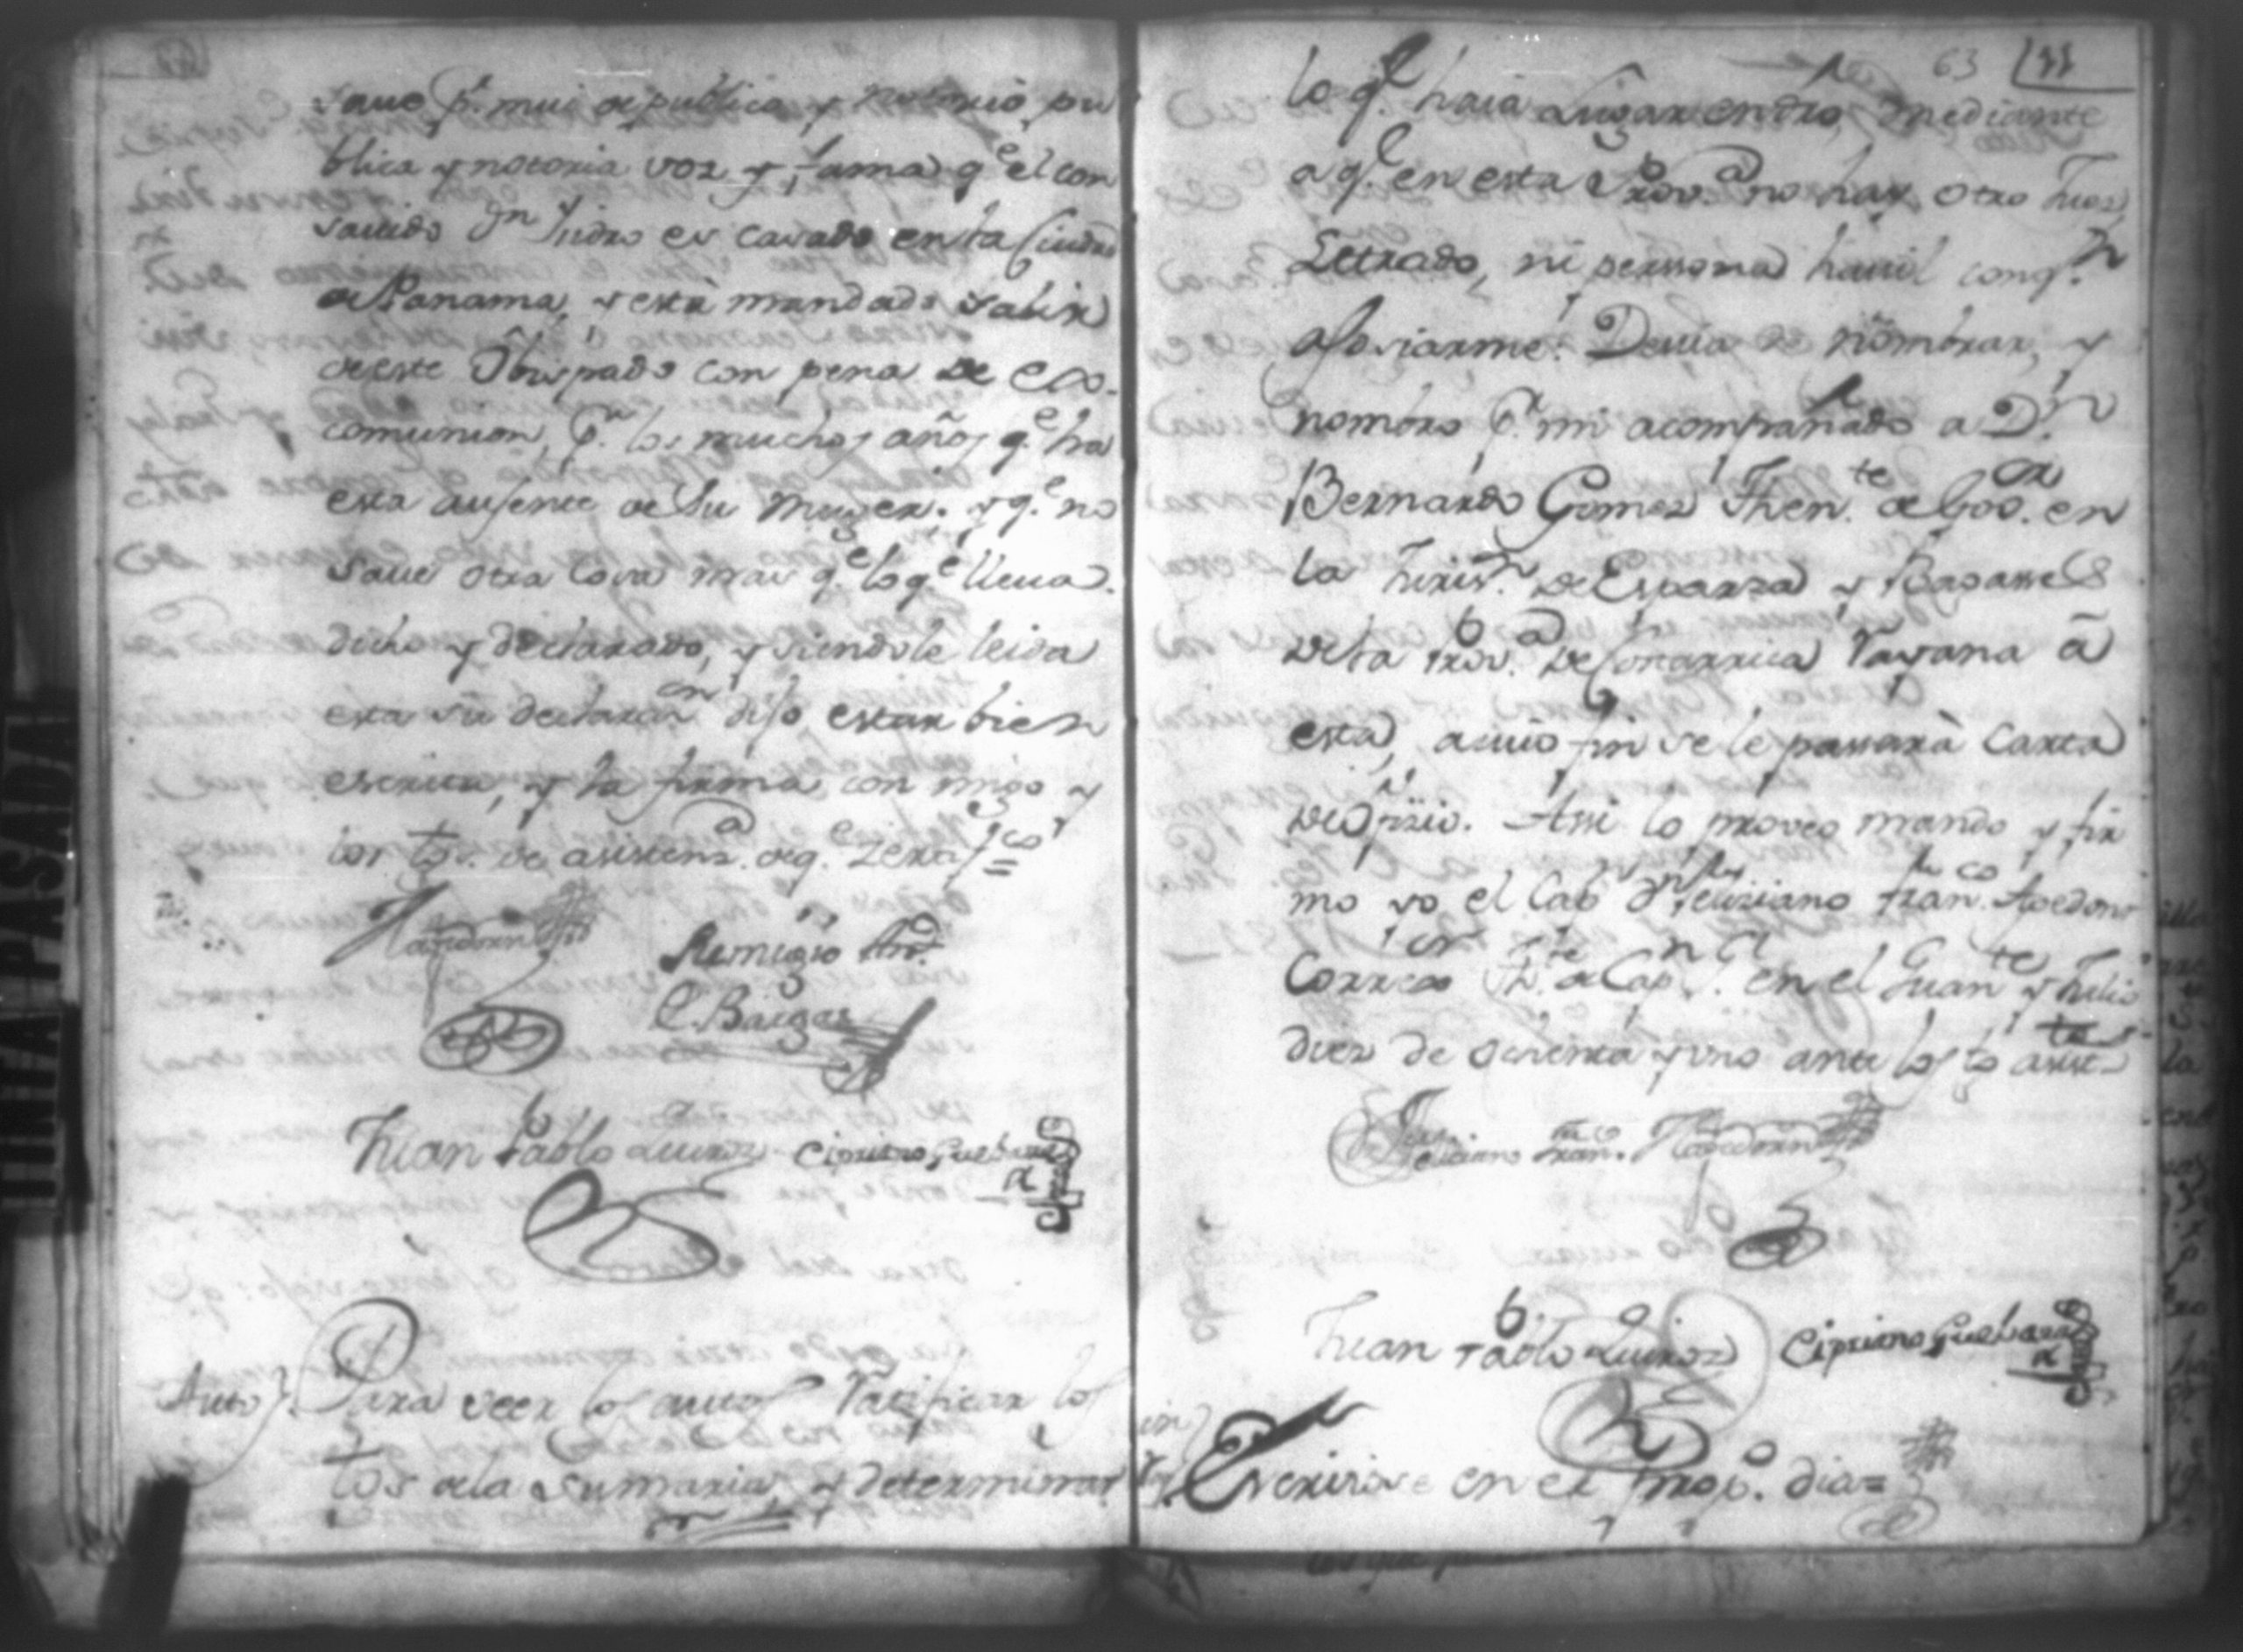 saue pr. mui de publica y notorio pu
blica y notoria voz y fama qe el con
sauido Dn Isidro es casado en la Ciudad
de Panama, y está mandado salir
de este Obispado con pena de exco.
comunion, pr. los muchos años qe ha
esta ausente de su Muger. y qe no
saue otra cosa mas qe lo qe lleua
dicho y declarado, y siendole leida
esta su declaracn dijo estar bien
escrita, y la firma con migo y
los tos. de asistena. de qe zertfco =
Remigio Anto.
C. Bargas
Juan Pablo Quiroz Cipriano Guebara
Auto. Para veer los autos Ratificar los
tos de la sumaria, y determinar
63
lo qe haia Lugar en dro, mediante
a qe en esta Prova no hay otro Juez
Letrado, ni perssona hauil con qn
assosiarme: Deuia de nombrar, y
nombro pr. mi acompañado a Dn
Bernardo Gomez Thente de Gor. en
la Jurisn. de Esparza y Bagasses
de la Prova de Costarrica Vayana â
esta, a cuio fin se le passarà Carta
de Ofizio. Assi lo proveo mando y fir
mo yo el Cap Dn Feliziano Franco
Corregor Te. de Capn Gl en el Guante y Julio
diez de setenta y uno ante los tos assist
Feliciano Franco.
Juan Pablo Quiroz Cipriano Guebara
Escriviose en el propo. dia =